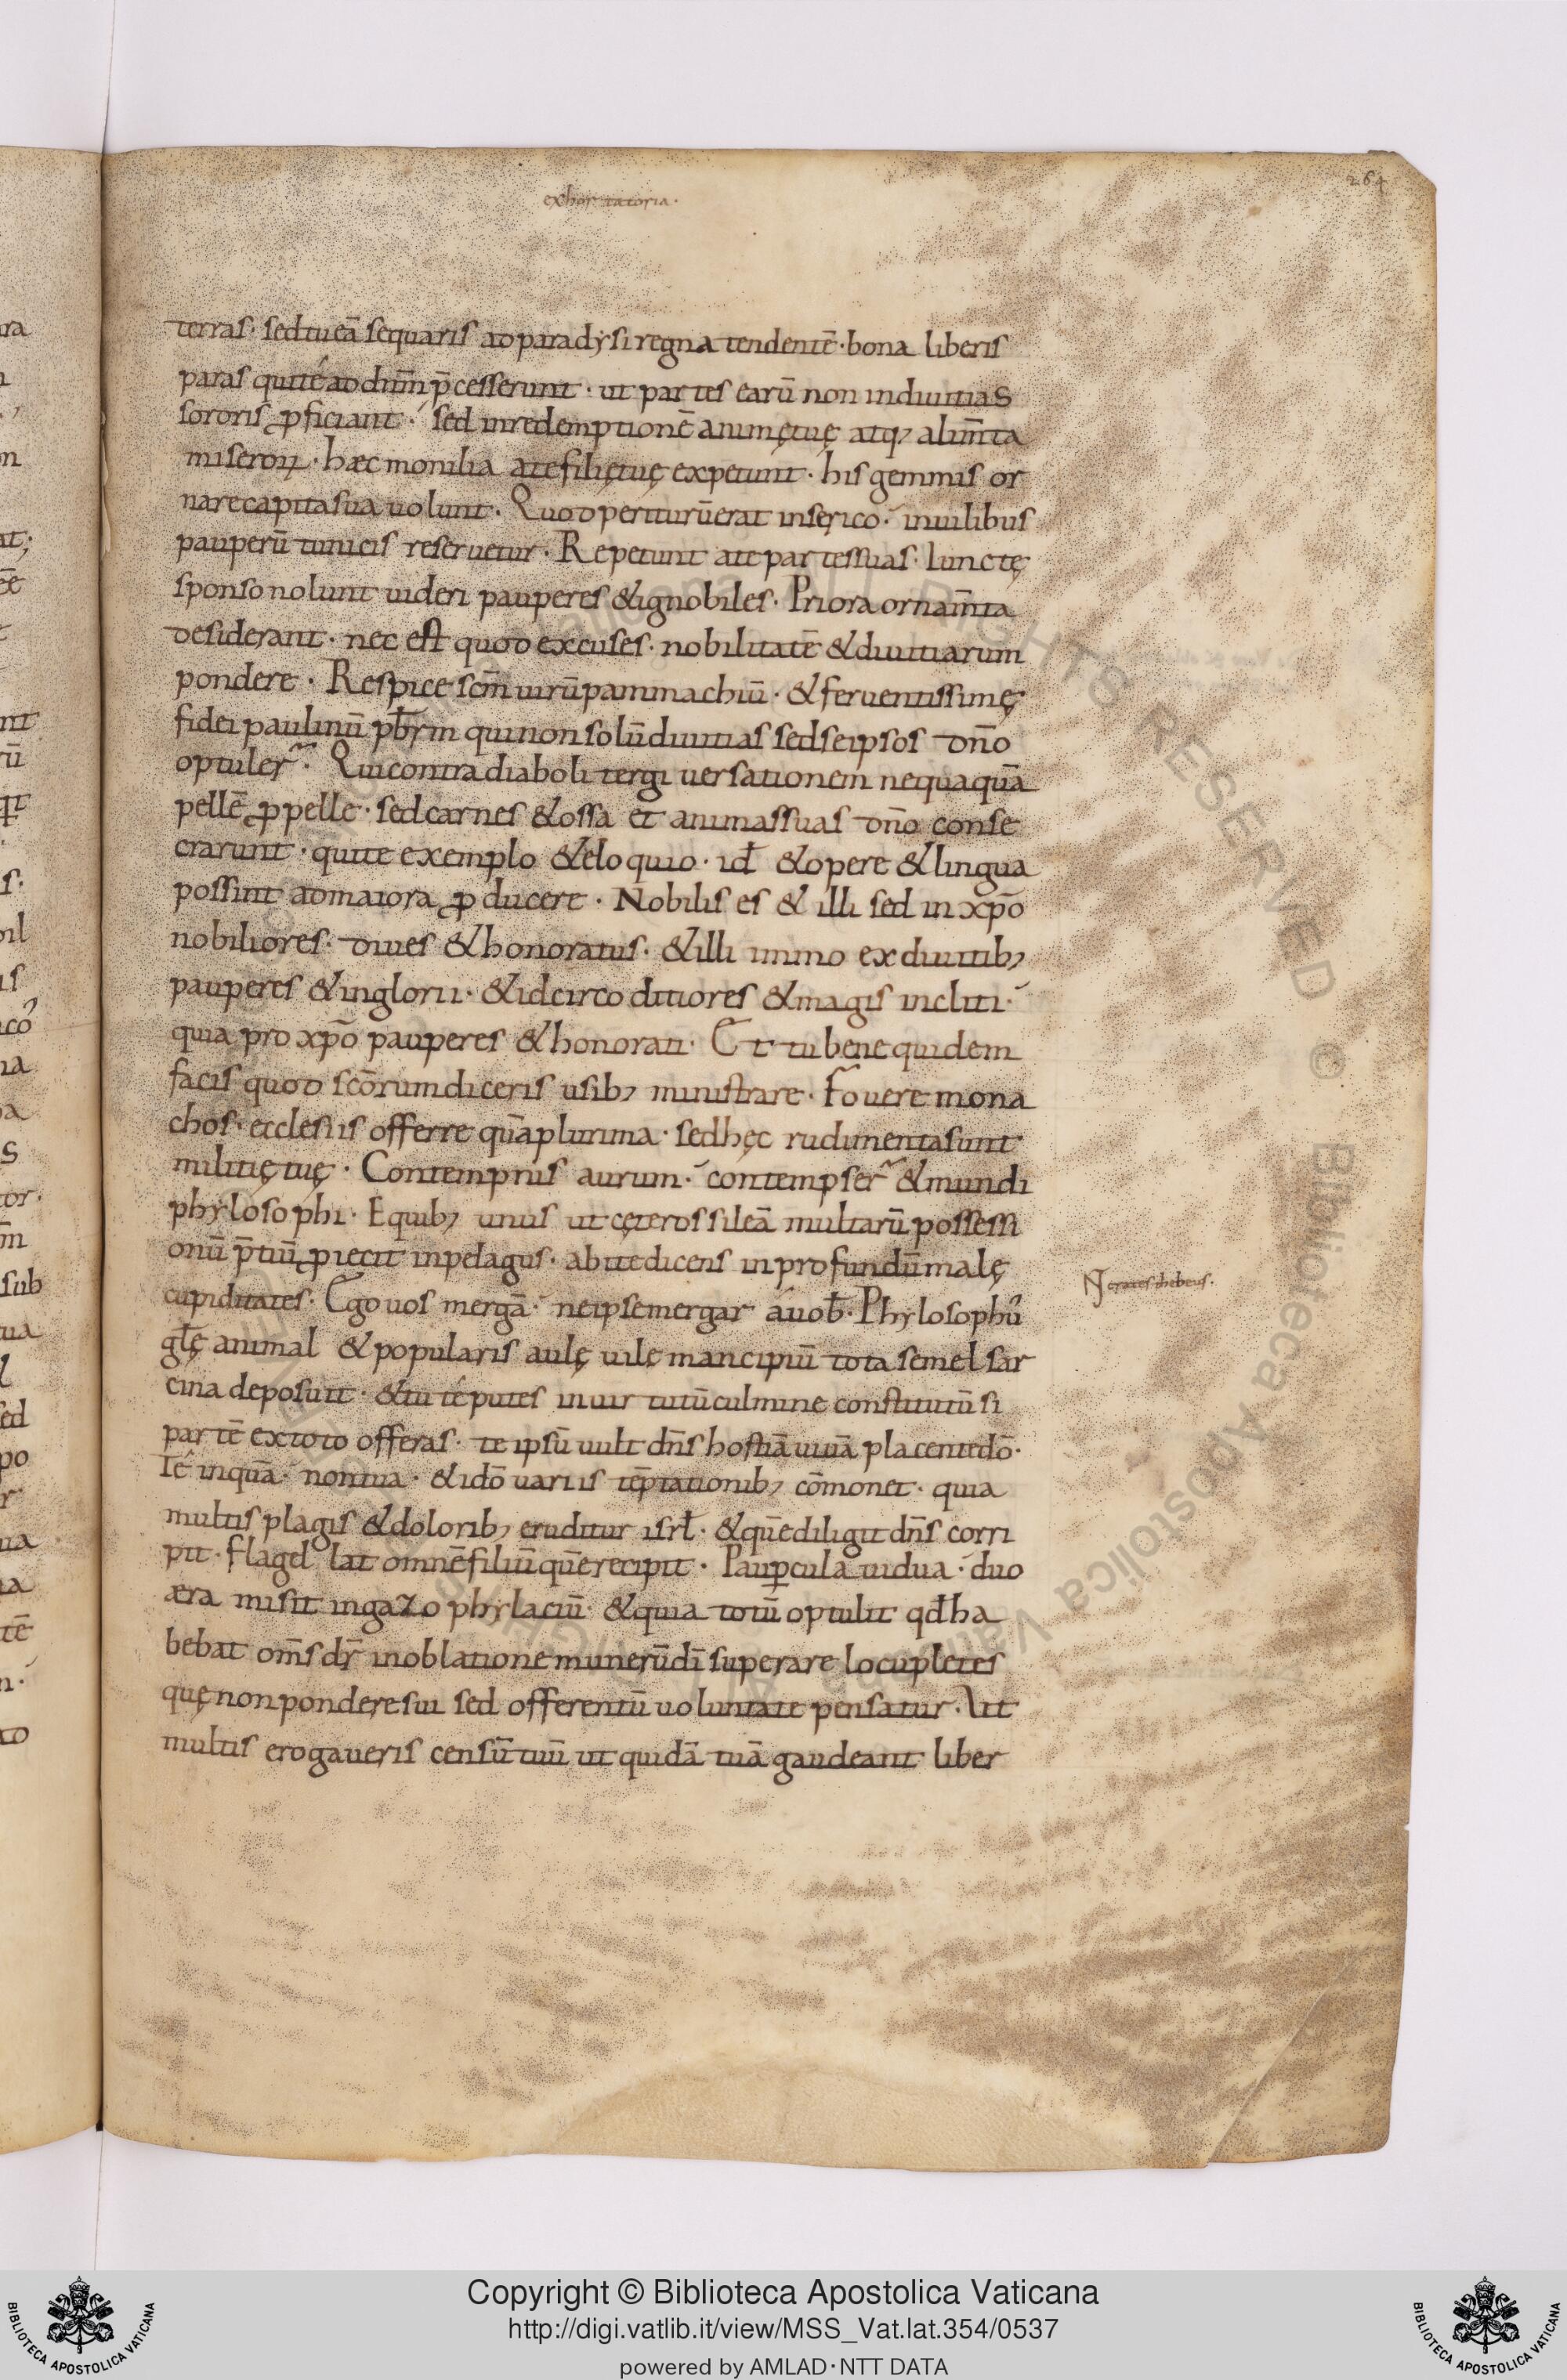 264
exhortatoria·
terras· sed tu eā sequaris ad paradysi regna tendentē· bona liberis
paras qui te ad dn̄m p̄cesserunt· ut partes earū non in diuitias
sororis ꝓficiant· sed in redemptionē animę tuę atq; alim̄ta
miseroꝝ· hæc monilia a te filię tuę expetunt· his gemmis or
nare capita sua uolunt· Quod periturū erat in serico· in uilibus
pauperū tunicis reseruetur· Repetunt a te partes suas· Iunctę
sponso nolunt uideri pauperes & ignobiles· Priora ornam̄ta
desiderant· nec est quod excuses· nobilitatē & diuitiarum
pondere· Respice sc̄m uirū pammachiū· & feruentissimę
fidei paulinū pb̄rm qui non solū diuitias sed se ipsos dn̄o
optuler̄· Qui contra diaboli tergiuersationem nequaquā
pellē ꝓ pelle· sed carnes & ossa et animas suas dn̄o conse
crarunt· qui te exemplo & eloquio· id̄ & opere & lingua
possint ad maiora ꝓducere· Nobilis es & illi sed in xp̄o
nobiliores· diues & honoratus· & illi immo ex diuitib;
pauperes & inglorii· & idcirco ditiores & magis incliti·
quia pro xp̄o pauperes & honorati· Et tu bene quidem
facis quod sc̄orum diceris usib; ministrare· Fouere mona
chos· ecclesiis offerre quā plurima· sed hęc rudimenta sunt
militię tuę· Contempnis aurum· contempser̄ & mundi
phylosophi· E quib; unus ut cęteros sileā multarū possessi
onū p̄tiū ꝓiecit in pelagus· abite dicens in profundū malę
cupiditates· Ego uos mergā· ne ipse mergar a uob̄· Phylosophꝰ
gl̄ę animal & popularis aulę uile mancipiū tota semel sar
cina deposuit· & tu te putes in uirtutū culmine constitutū si
partē ex toto offeras· te ipsū uult dn̄s hostiā uiuā placentē dō·
Te inquā· non tua· & idō uariis tēptationib; cōmonet· quia
multis plagis & dolorib; eruditur isrl̄· & quē diligit dn̄s corri
pit· flagellat omnē filiū quē recipit· Paup̱cula uidua· duo
æra misit in gazophylaciū· & quia totū optulit qd̄ ha
bebat om̄s dr̄ in oblatione munerū dī superare locupletes
quę non pondere sui sed offerentū uoluntate pensatur· Ut
multis erogaueris censū tuū ut quidā tuā gaudeant liber
N crates thebeus·
ALL RIGHTS RESERVED © Biblioteca Apostolica Vaticana
Copyright © Biblioteca Apostolica Vaticana
http://digi.vatlib.it/view/MSS_Vat.lat.354/0537
powered by AMLAD·NTT DATA
BIBLIOTECA APOSTOLICA VATICANA
BIBLIOTECA APOSTOLICA VATICANA